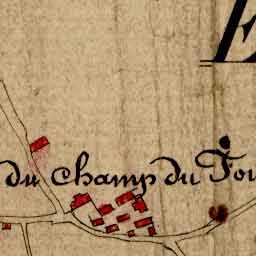 E
du Champ du Fou